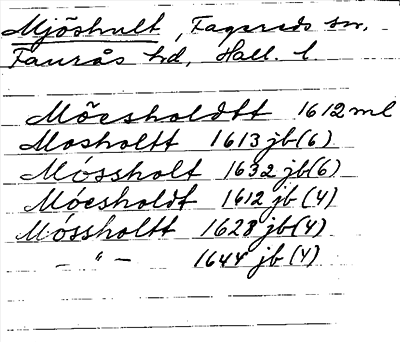 Mjöshult, Fagereds sn,
Faurås hd, Hall. l.
Möesholdtt 1612 ml
Mosholtt 1613 jb (6)
Móssholt 1632 jb (6)
Móesholdt 1612 jb (4)
Móssholtt 1628 jb (4)
— " — 1644 jb (4)